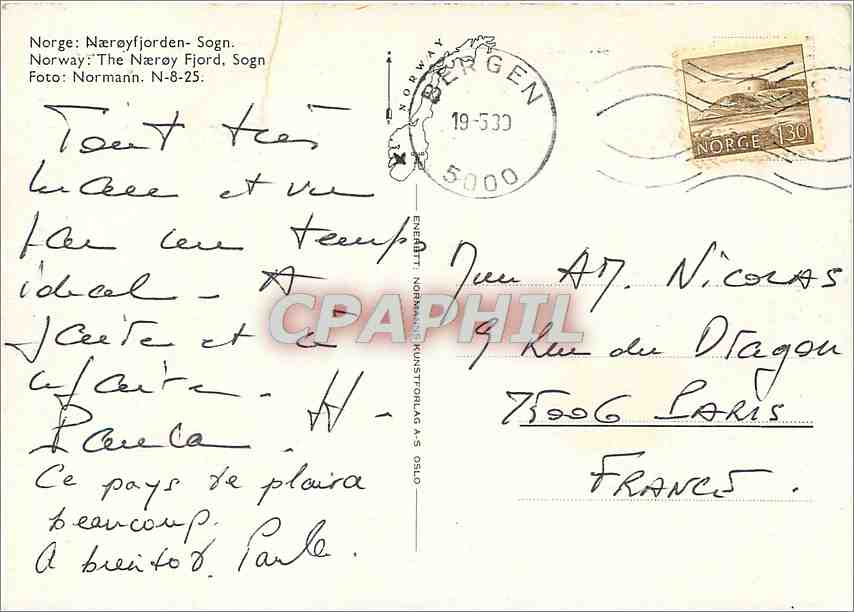 Norge: Nærøyfjorden- Sogn.
Norway: The Nærøy Fjord, Sogn
Foto: Normann. N-8-25.
NORWAY
BERGEN
19-5.80
5000
NORGE 1,30
Tout très
beau et vu
par un temps
idéal - A
faire et à
refaire -
Paula - H -
Ce pays te plaira
beaucoup.
A bientôt. Paula.
ENERETT: NORMANNS KUNSTFORLAG A-S OSLO
AM. NICOLAS
9 Rue du Dragon
75006 PARIS
FRANCE.
CPAPHIL